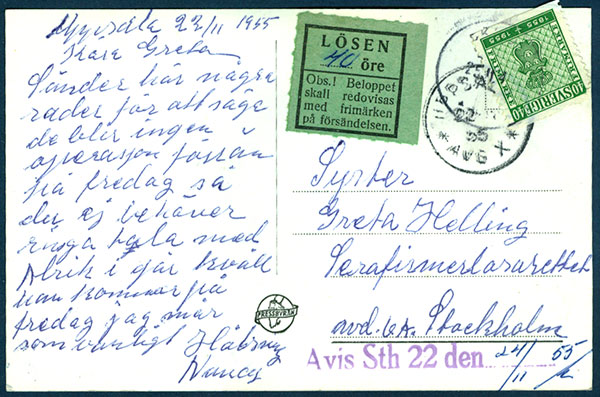 Uppsala 22/11 1955
Kära Greta
Sänder här några
rader för att säga
de blir ingen
operasjon förrän
på fredag så
du ej behöver
ringa tala med
Alrik i går kväll
han kommer på
fredag jag mår
som vanligt
LÖSEN
40 öre
Obs.! Beloppet
skall redovisas
med frimärken
på försändelsen.
UPPSALA
22
55
AVG X
1855 1955
SVERIGE 40
Syster
Greta Helling
Serafimerlasarettet
Stockholm
PRESSBYRÅN
Avis Sth 22 den 24/11 55